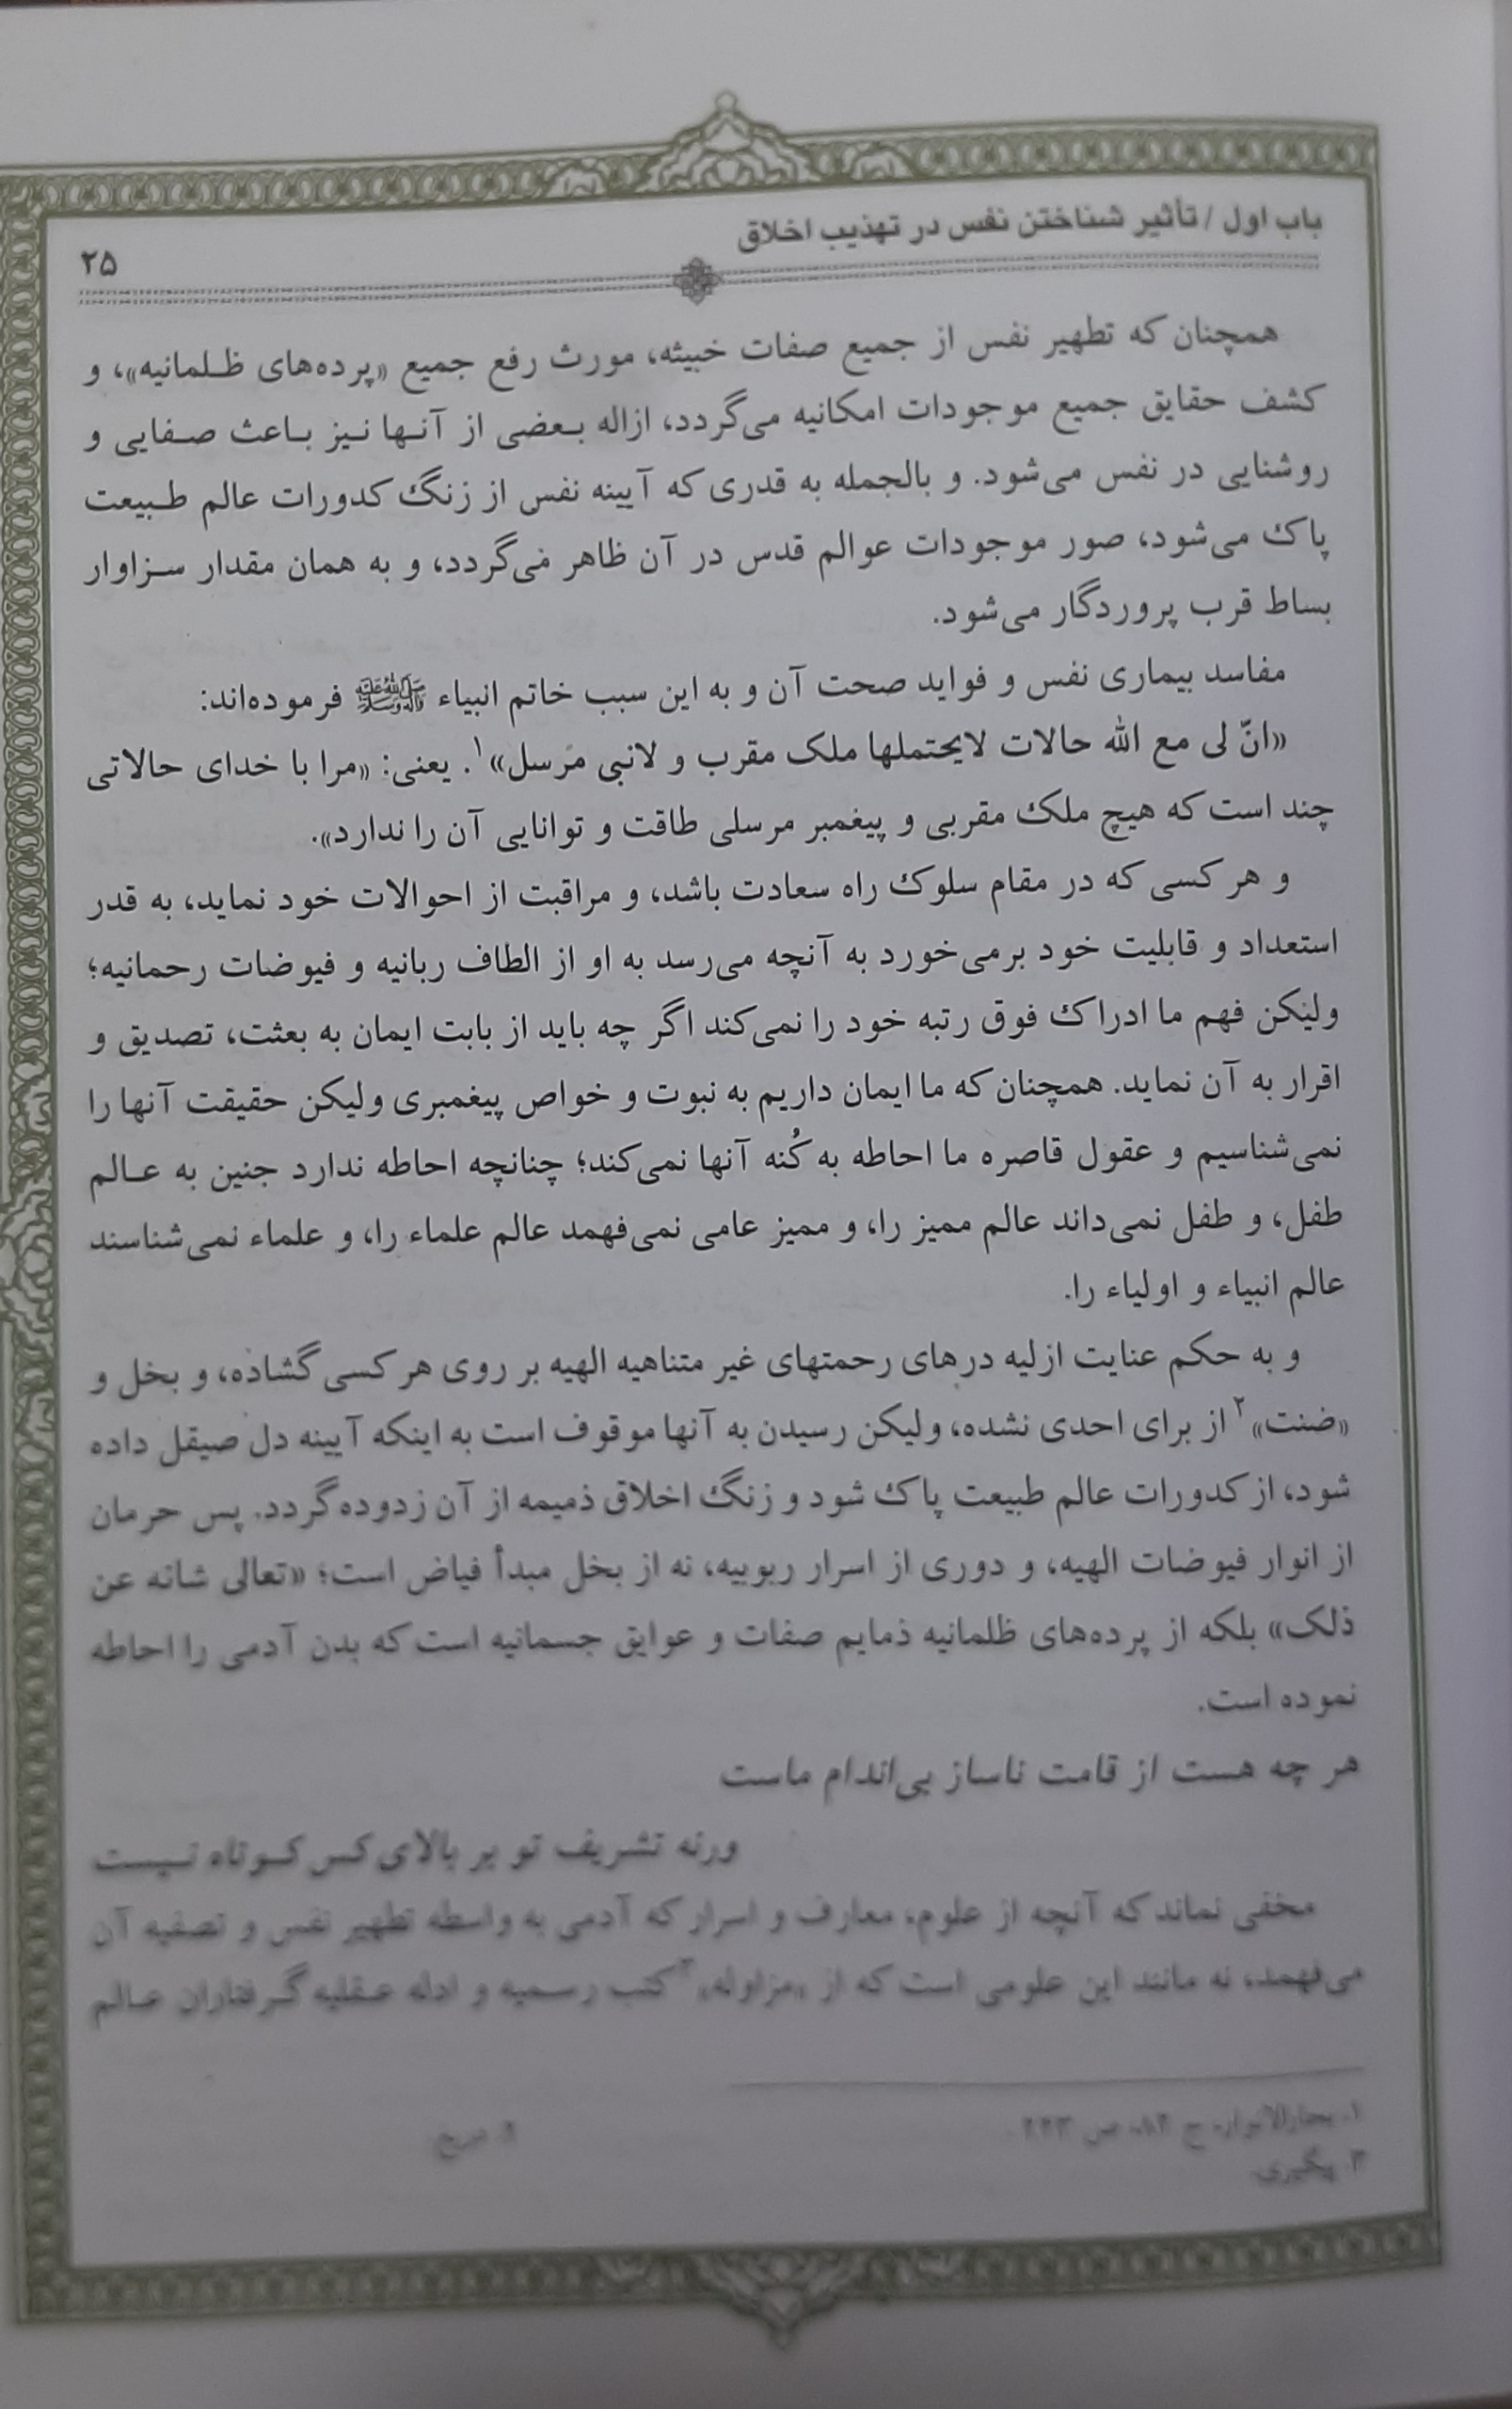 باب اول / تأثیر شناختن نفس در تهذیب اخلاق
۲۵
همچنان که تطهیر نفس از جمیع صفات خبیثه، مورث رفع جمیع «پرده‌های ظلمانیه»، و
کشف حقایق جمیع موجودات امکانیه می‌گردد، ازاله بعضی از آنها نیز باعث صفایی و
روشنایی در نفس می‌شود. و بالجمله به قدری که آیینه نفس از زنگ کدورات عالم طبیعت
پاک می‌شود، صور موجودات عوالم قدس در آن ظاهر می‌گردد، و به همان مقدار سزاوار
بساط قرب پروردگار می‌شود.
مفاسد بیماری نفس و فواید صحت آن و به این سبب خاتم انبیاء ﷺ فرموده‌اند:
«انّ لی مع الله حالات لایحتملها ملک مقرب و لانبی مرسل»۱. یعنی: «مرا با خدای حالاتی
چند است که هیچ ملک مقربی و پیغمبر مرسلی طاقت و توانایی آن را ندارد».
و هر کسی که در مقام سلوک راه سعادت باشد، و مراقبت از احوالات خود نماید، به قدر
استعداد و قابلیت خود برمی‌خورد به آنچه می‌رسد به او از الطاف ربانیه و فیوضات رحمانیه؛
ولیکن فهم ما ادراک فوق رتبه خود را نمی‌کند اگر چه باید از بابت ایمان به بعثت، تصدیق و
اقرار به آن نماید. همچنان که ما ایمان داریم به نبوت و خواص پیغمبری ولیکن حقیقت آنها را
نمی‌شناسیم و عقول قاصره ما احاطه به کُنه آنها نمی‌کند؛ چنانچه احاطه ندارد جنین به عالم
طفل، و طفل نمی‌داند عالم ممیز را، و ممیز عامی نمی‌فهمد عالم علماء را، و علماء نمی‌شناسند
عالم انبیاء و اولیاء را.
و به حکم عنایت ازلیه درهای رحمتهای غیر متناهیه الهیه بر روی هر کسی گشاده، و بخل و
«ضنت»۲ از برای احدی نشده، ولیکن رسیدن به آنها موقوف است به اینکه آیینه دل صیقل داده
شود، از کدورات عالم طبیعت پاک شود و زنگ اخلاق ذمیمه از آن زدوده گردد. پس حرمان
از انوار فیوضات الهیه، و دوری از اسرار ربوبیه، نه از بخل مبدأ فیاض است؛ «تعالی شانه عن
ذلک» بلکه از پرده‌های ظلمانیه ذمایم صفات و عوایق جسمانیه است که بدن آدمی را احاطه
نموده است.
هر چه هست از قامت ناساز بی‌اندام ماست
ورنه تشریف تو بر بالای کس کوتاه نیست
مخفی نماند که آنچه از علوم، معارف و اسرار که آدمی به واسطه تطهیر نفس و تصفیه آن
می‌فهمد، نه مانند این علومی است که از «مزاوله»۳ کتب رسمیه و ادله عقلیه گرفتاران عالم
۱. بحارالانوار، ج ۸۲، ص ۲۴۳.
۲. دریغ
۳. پیگیری